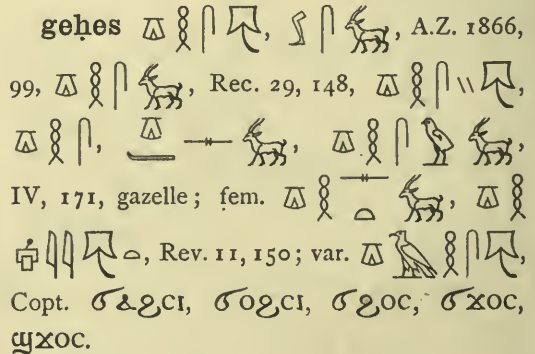 geḥes 𓎼𓎛𓋴𓄛, 𓋴𓃴, A.Z. 1866,
99, 𓎼𓎛𓋴𓃴, Rec. 29, 148, 𓎼𓎛𓋴𓏭𓄛,
𓎼𓎛𓋴, 𓎼𓐛𓊃𓃴, 𓎼𓎛𓋴𓅱𓃴,
IV, 171, gazelle; fem. 𓎼𓎛𓊃𓏏𓃴, 𓎼𓎛
𓇋𓇋𓄛𓏏, Rev. 11, 150; var. 𓎼𓄿𓎛𓋴𓄛,
Copt. ϭⲁϩⲥⲓ, ϭⲟϩⲥⲓ, ϭϩⲟⲥ, ϭϫⲟⲥ,
ϣϫⲟⲥ.